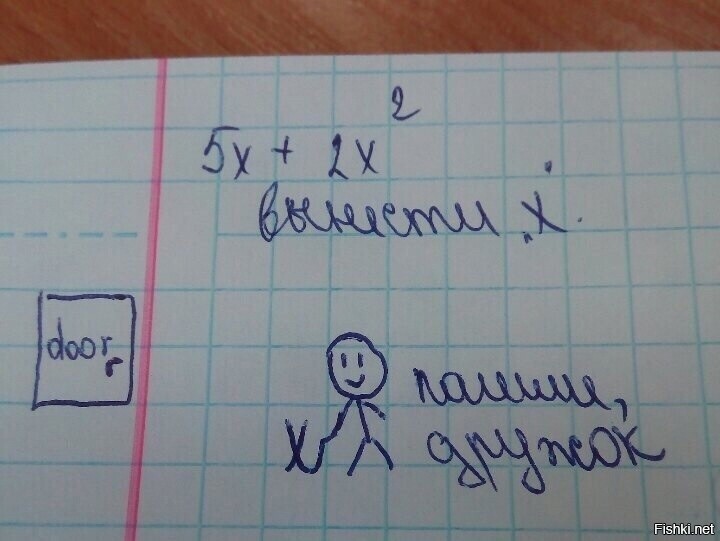 5x + 2x²
вынести "x".
door
пошли,
дружок
x
Fishki.net